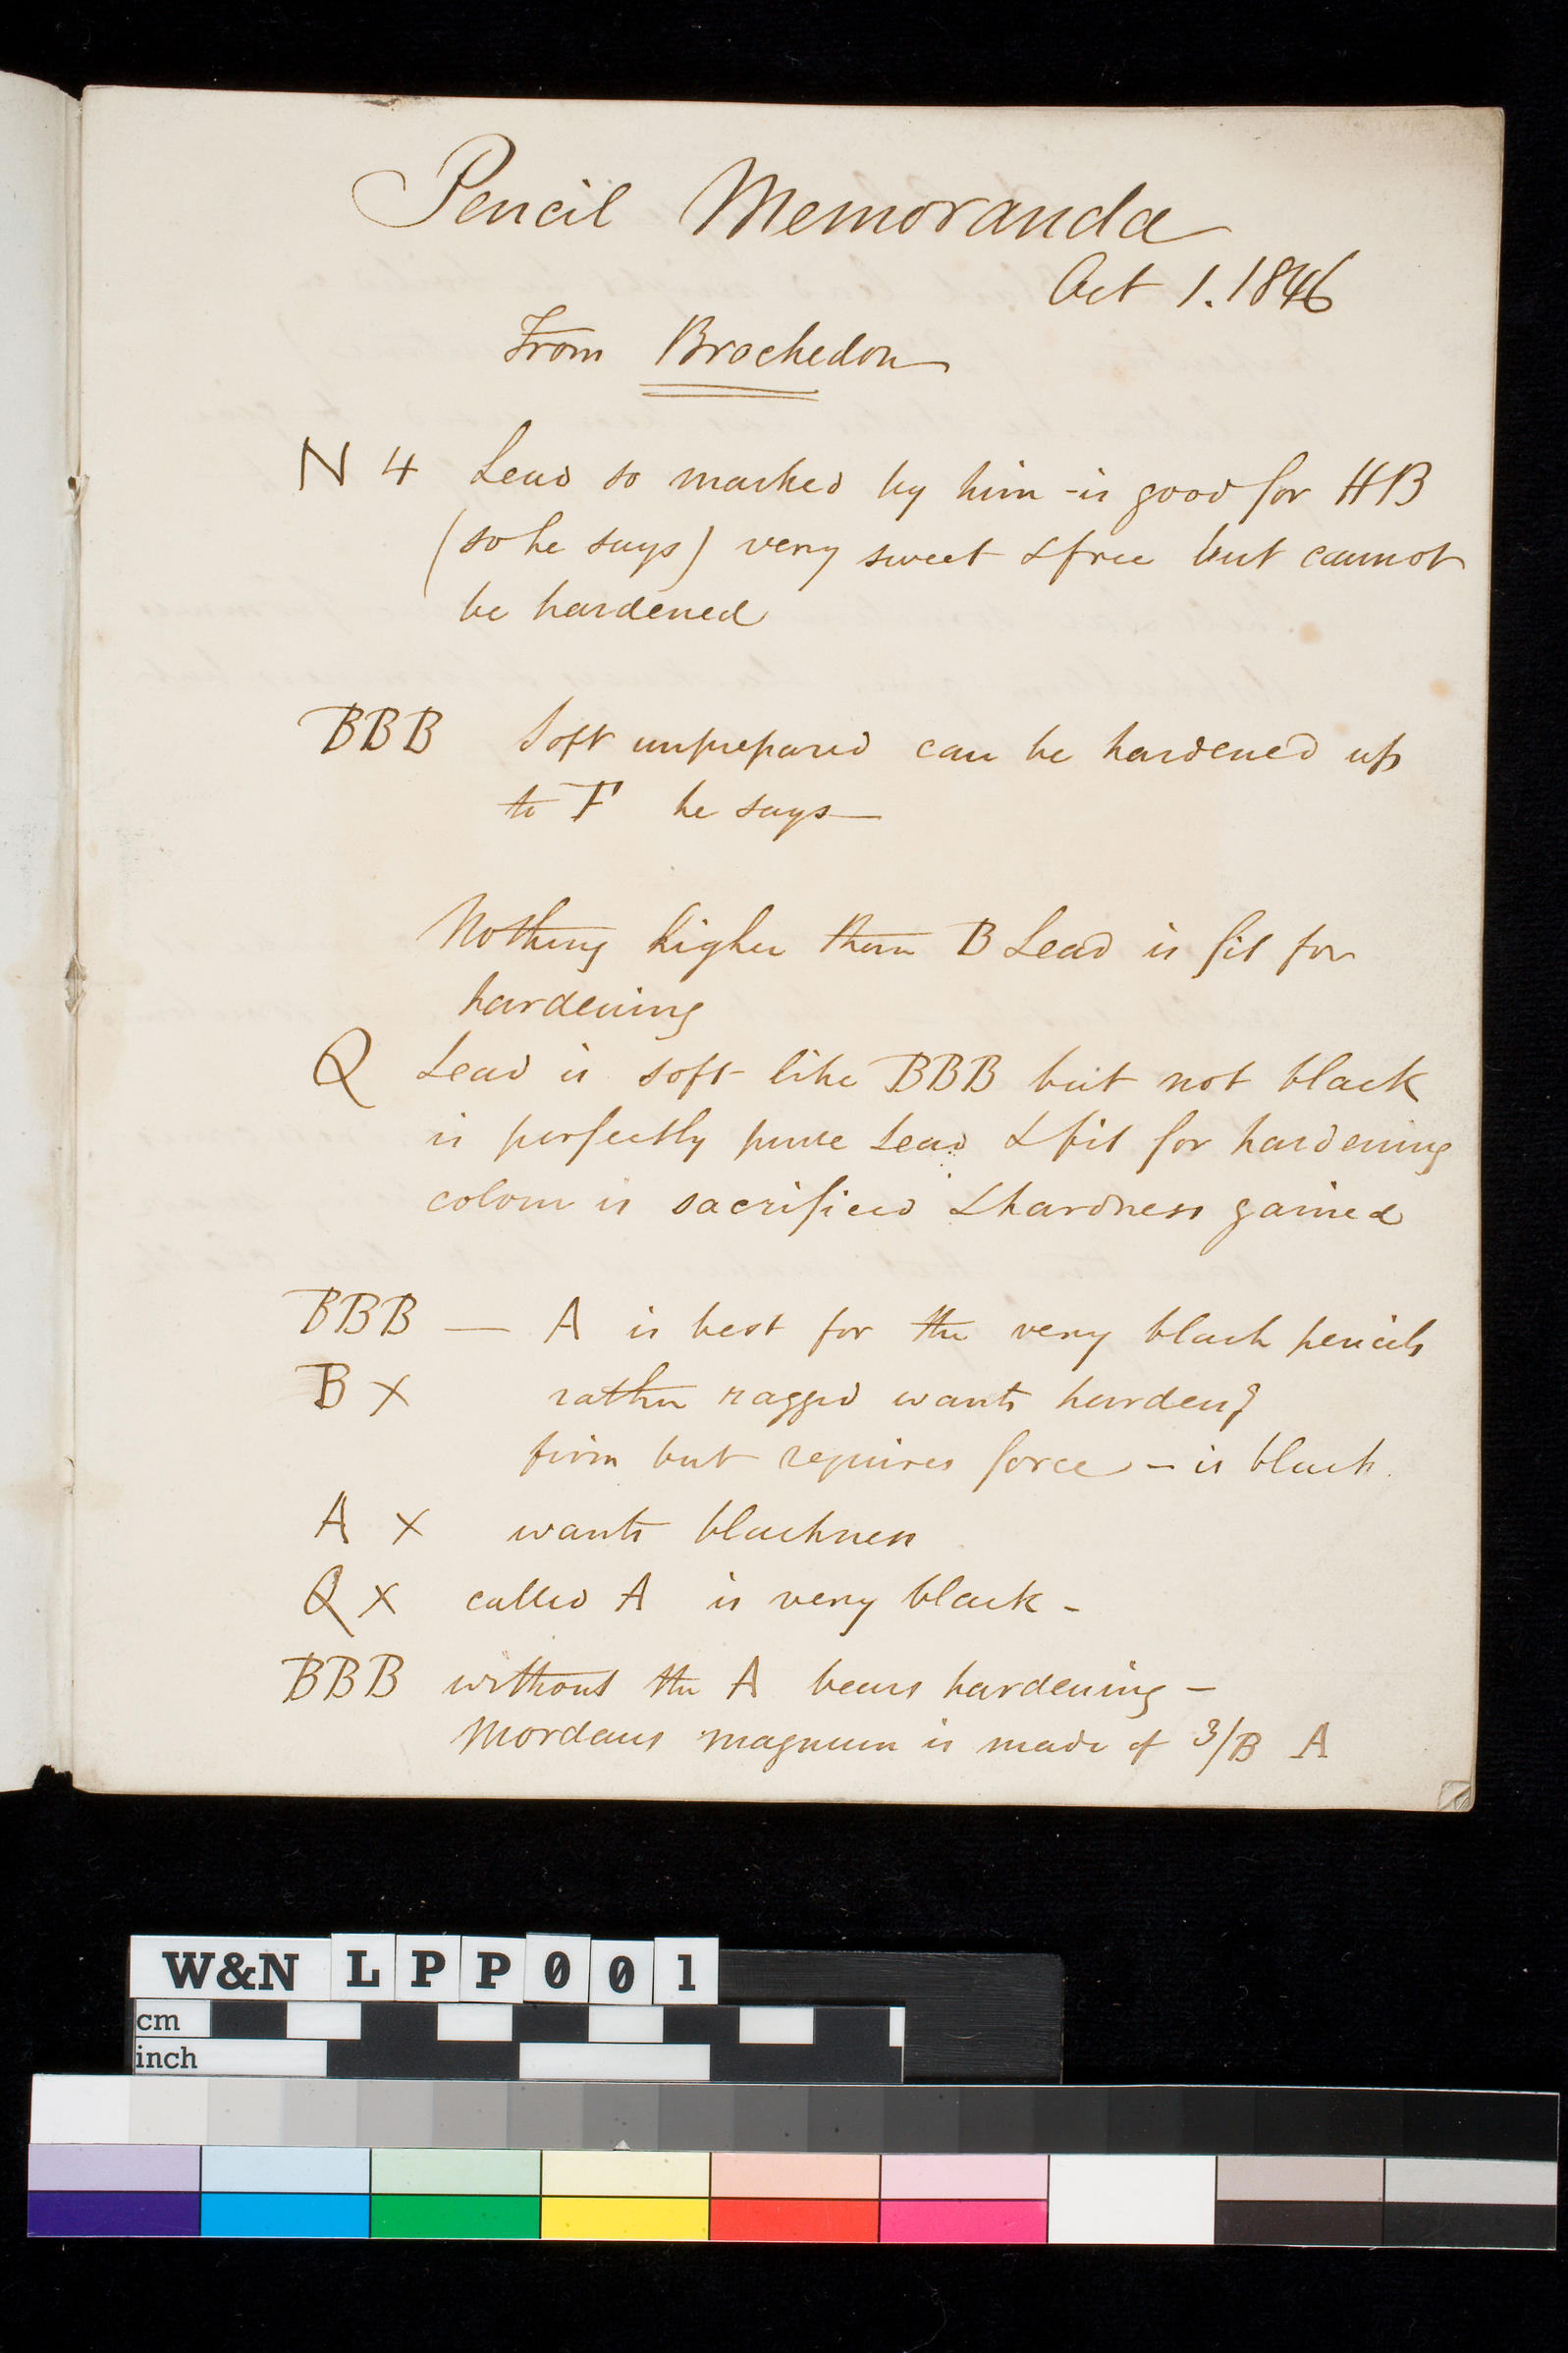 Pencil Memoranda
Oct 1. 1846
From Brockedon
N 4 Lead so marked by him - is good for HB
(so he says) very sweet & free but cannot
be hardened
BBB Soft unprepared can be hardened up
to F he says—
Nothing higher than B Lead is fit for
hardening
Q Lead is soft like BBB but not black
is perfectly pure Lead & fit for hardening
colour is sacrificed & hardness gained
BBB — A is best for the very black pencils
B x rather ragged wants hardeng
firm but requires force - is black.
A x wants blackness
Q x called A is very black -
BBB without the A bears hardening -
Mordans magnum is made of 3/B A
W&N LPP001
cm
inch